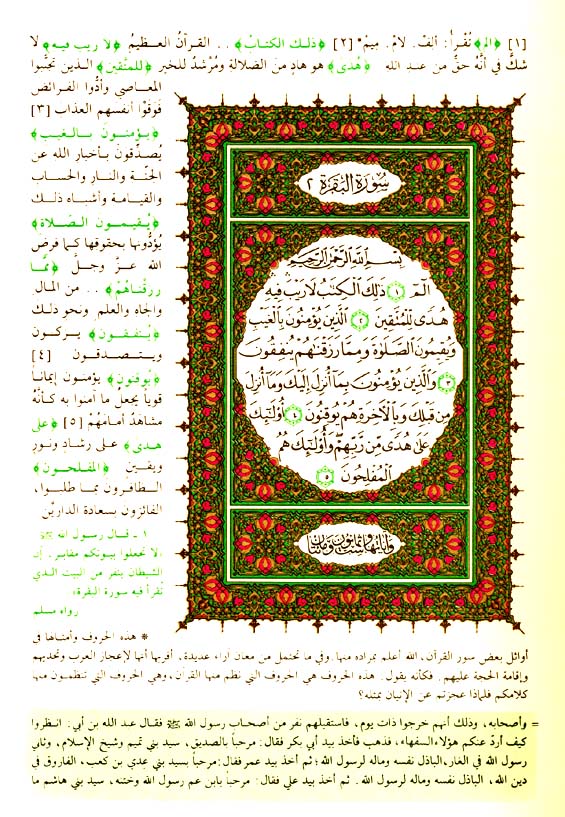 [١] ﴿الم﴾ تُقْرأُ: ألِفْ. لامْ. ميمْ* [٢] ﴿ذلك الكتابُ﴾ .. القرآنُ العظيمُ ﴿لا ريب فيه﴾ لا
شكَّ في أنَّهُ حقٌّ من عند الله ﴿هُدىً﴾ هو هادٍ منَ الضلالةِ ومُرْشدٌ للخيرِ ﴿للمتَّقين﴾ الذين تجنَّبوا
المعاصي وأدَّوا الفرائض
فَوَقَوْا أنفسهم العذاب [٣]
﴿يـؤمنـون بـالغـيب﴾
يُصدِّقونَ بأخبار الله عن
الجنَّة والنارِ والحساب
والقيامـة وأشباه ذلـك
﴿يُـقيمـون الصَّـلاة﴾
يُؤدُّونها بحقوقها كما فرض
الله عزَّ وجلَّ ﴿ممَّا
رزقْناهُمْ﴾ .. من المال
والجاه والعلم ونحو ذلـك
﴿يُـنْفقـون﴾ يـزكـون
ويتصدقـون [٤]
﴿يوقنون﴾ يؤمنون إيمانـاً
قوياً يجعل ما آمنوا به كـأنَّـهُ
مشاهَدٌ أمـامَهُمْ [٥] ﴿على
هدى﴾ على رشادٍ ونـورٍ
ويقـينٍ ﴿المفلحـون﴾
الظـافـرون بمـا طلبـوا،
الفائزون بسعادة الدارَيْن
سُورَةُ البَقَرَة ٢
بِسْمِ اللَّهِ الرَّحْمَٰنِ الرَّحِيمِ
الٓمٓ ١ ذَٰلِكَ الْكِتَٰبُ لَا رَيْبَ فِيهِ
هُدًى لِّلْمُتَّقِينَ ٢ الَّذِينَ يُؤْمِنُونَ بِالْغَيْبِ
وَيُقِيمُونَ الصَّلَوٰةَ وَمِمَّا رَزَقْنَٰهُمْ يُنفِقُونَ
٣ وَالَّذِينَ يُؤْمِنُونَ بِمَا أُنزِلَ إِلَيْكَ وَمَا أُنزِلَ
مِن قَبْلِكَ وَبِالْآخِرَةِ هُمْ يُوقِنُونَ ٤ أُوْلَٰئِكَ
عَلَىٰ هُدًى مِّن رَّبِّهِمْ وَأُوْلَٰئِكَ هُمُ
الْمُفْلِحُونَ ٥
وَآيَاتُهَا سِتٌّ وَثَمَانُونَ وَمِئَتَانِ
١ - قـال رسـول الله ﷺ
«لا تجعلوا بيـوتكم مقابـر. إن
الشيطان ينفر من البيت الـذي
تُقرأ فيه سورة البقرة»
رواه مسلم
* هذه الحروف وأمثالها في
أوائل بعض سور القرآن، الله أعلم بمراده منها. وفي ما تحتمل من معان آراء عديدة، أقربها أنها لإعجاز العرب وتحديهم
وإقامة الحجة عليهم. فكأنه يقول. هذه الحروف هي الحروف التي نظم منها القرآن، وهي الحروف التي تنظمـون منها
كلامكم فلماذا عجزتم عن الإتيان بمثله؟
= وأصحابه، وذلك أنهم خرجوا ذات يوم، فاستقبلهم نفر من أصحاب رسول الله ﷺ فقال عبد الله بن أبي: انظروا
كيف أردّ عنكم هؤلاء السفهاء، فذهب فأخذ بيد أبي بكر فقال: مرحباً بالصديق، سيد بني تميم وشيخ الإسلام، وثاني
رسول الله في الغار، الباذل نفسه وماله لرسول الله؛ ثم أخذ بيد عمر فقال: مرحباً بسيد بني عدي بن كعب، الفاروق في
دين الله، الباذل نفسه وماله لرسول الله. ثم أخذ بيد علي فقال: مرحباً بابن عم رسول الله وختنه، سيد بني هاشم ما